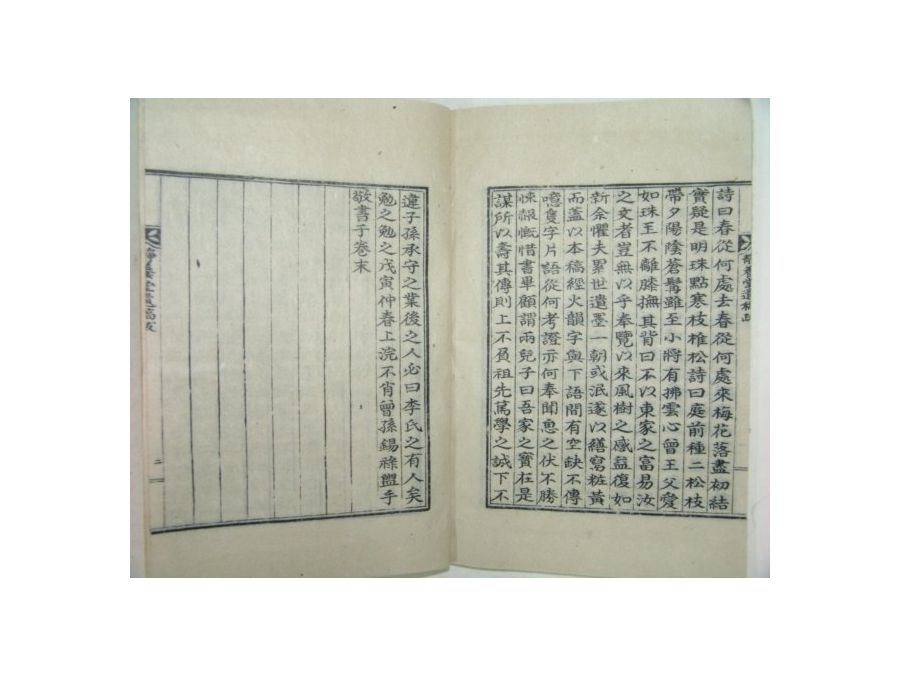 詩曰春從何處去春從何處來梅花落盡初結
實疑是明珠點寒枝椎松詩曰庭前種二松枝
帶夕陽陰蒼髯雖至小將有拂雲心曾王父愛
如珠玉不離膝撫其背曰不以東家之富易汝
之文者豈無以乎奉覽以來風樹之感益復如
新余懼夫累世遺墨一朝或泯遂以繕寫粧黃
而盖以本稿經火韻字與下語間有空缺不傳
噫隻字片語從何考證亦何奉聞恩之伏不勝
悚恨慨惜書畢顧謂兩兒子曰吾家之寶在是
謀所以壽其傳則上不負祖先篤學之誠下不
違子孫承守之業後之人必曰李氏之有人矣
勉之勉之戊寅仲春上浣不肖曾孫錫祿盥手
敬書于卷末
二